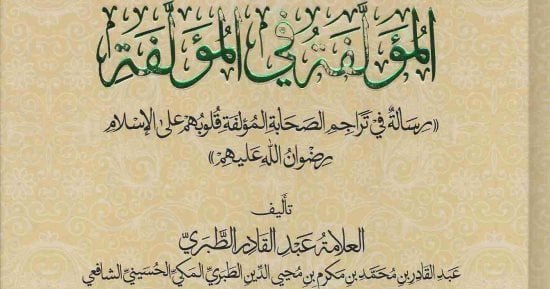 المُؤَلَّفَةُ فِي المُؤَلَّفَةِ
«رِسَالَةٌ فِي تَرَاجِمِ الصَّحَابَةِ المُؤَلَّفَةِ قُلُوبُهُمْ عَلَى الإِسْلَامِ
رِضْوَانُ اللهِ عَلَيْهِمْ»
تأليف
العلامة عبد القادر الطَّبَرِيِّ
عَبْدِ القَادِرِ بْنِ مُحَمَّدِ بْنِ مُكْرَمِ بْنِ مُحِبِّي الدِّينِ الطَّبَرِيِّ المَكِّيِّ الحُسَيْنِيِّ الشَّافِعِيِّ